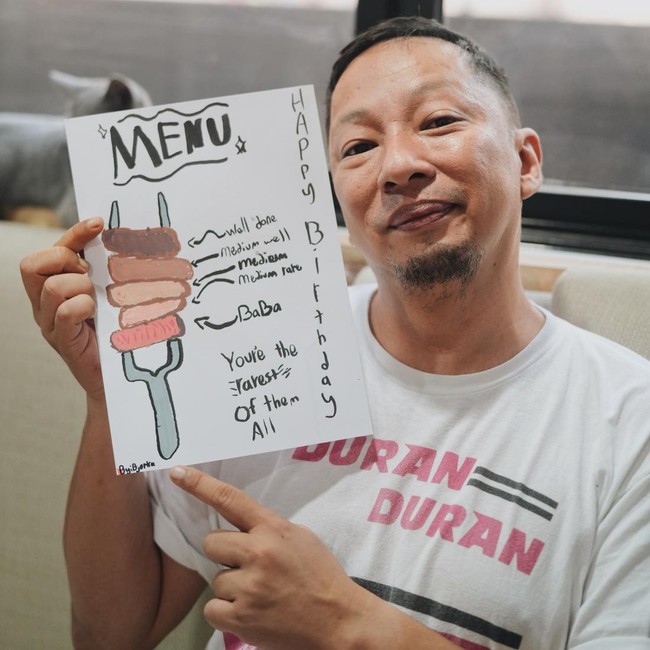 MENU
HAPPY Birthday
Well done
Medium well
medium
Medium rare
BaBa
You're the
rarest
Of them
All
By:Bjorka
DURAN
DURAN